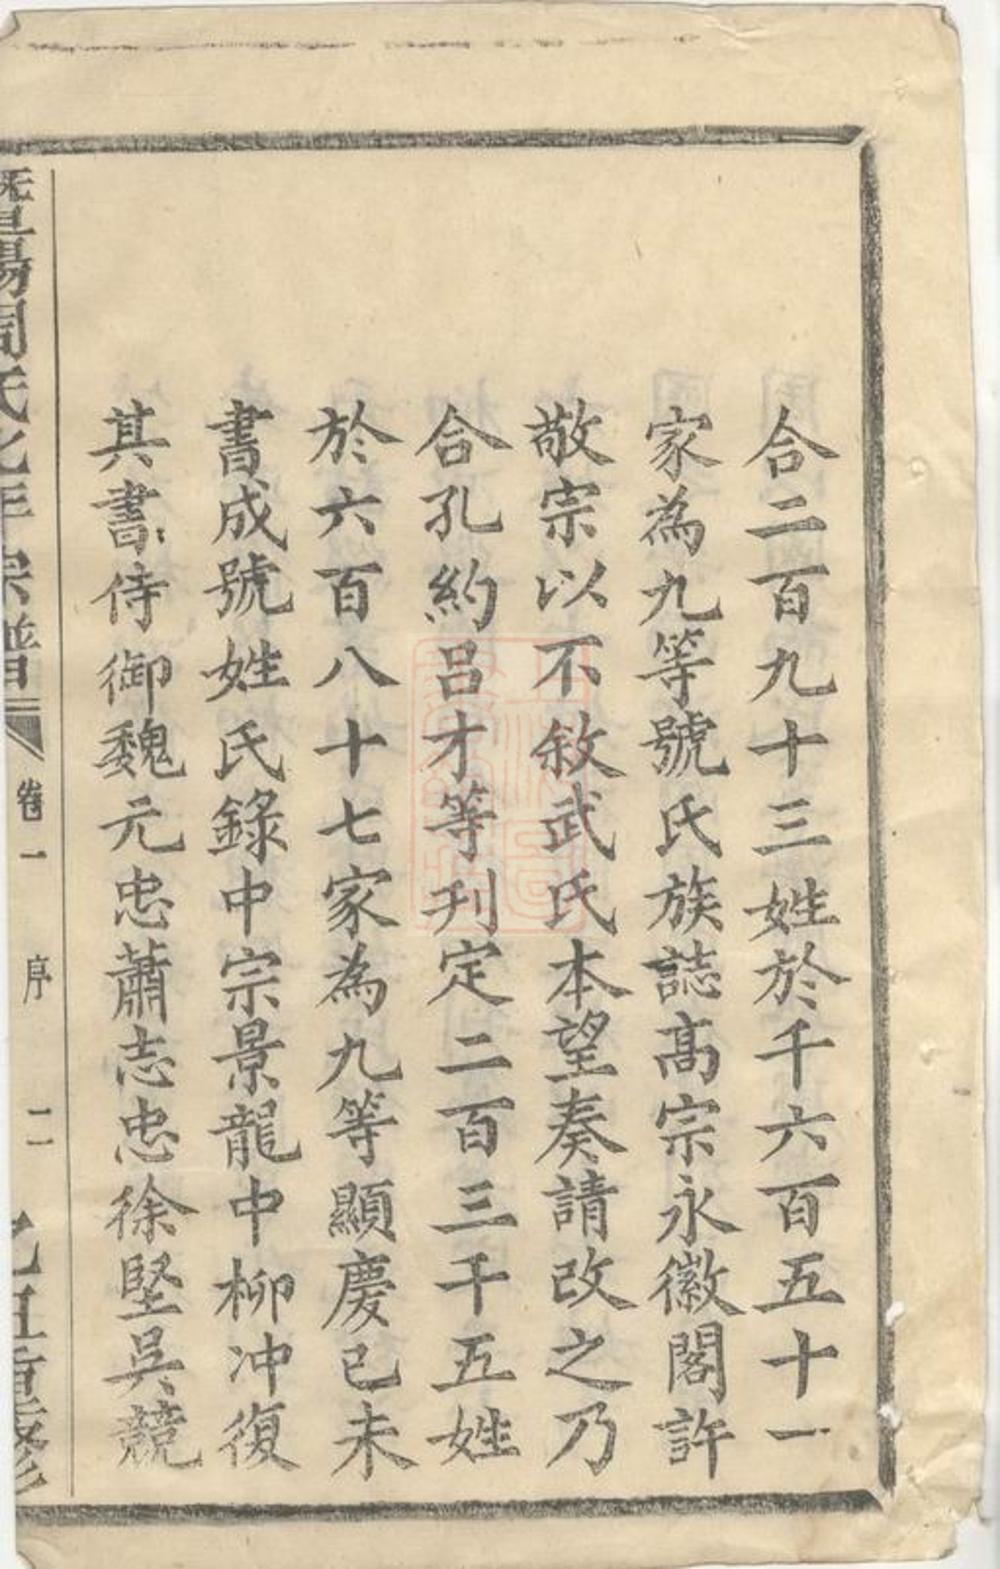 合二百九十三姓於千六百五十一
家為九等號氏族誌高宗永徽閣許
敬宗以不敘武氏本望奏請改之乃
合孔約呂才等刋定二百三千五姓
於六百八十七家為九等顯慶已未
書成號姓氏錄中宗景龍中柳冲復
其書侍御魏元忠蕭志忠徐堅吳競
暨陽周氏宗譜
卷一
序
二
乙丑重修